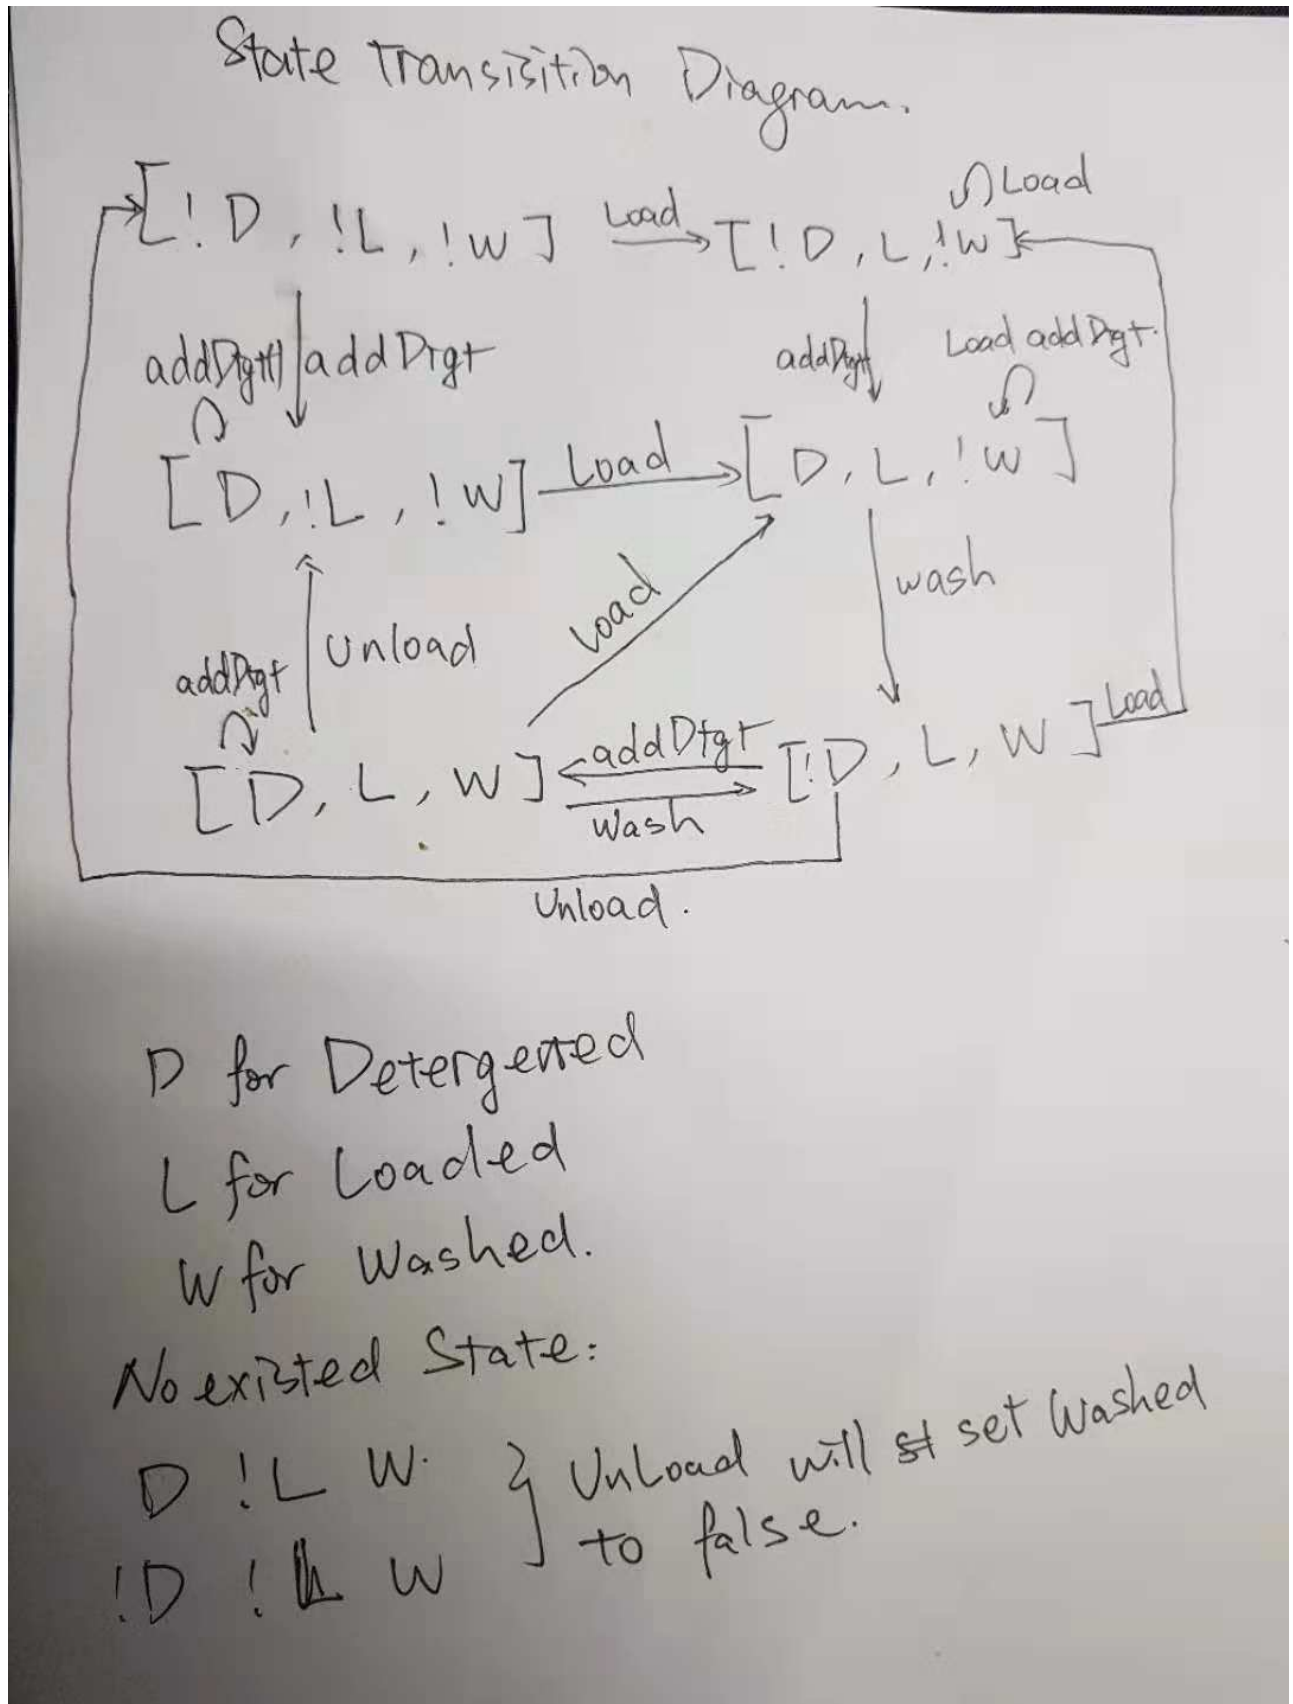 State Transisition Diagram.
Load
[!D, !L, !W] Load [!D, L, !W]
addDtgt addDtgt addDtgt Load addDtgt.
[D, !L, !W] Load [D, L, !W]
addDtgt Unload Load wash
[D, L, W] addDtgt [!D, L, W] Load
Wash
Unload.
D for Detergented
L for Loaded
W for Washed.
No existed State:
D !L W. } UnLoad will set Washed
!D !L W to false.